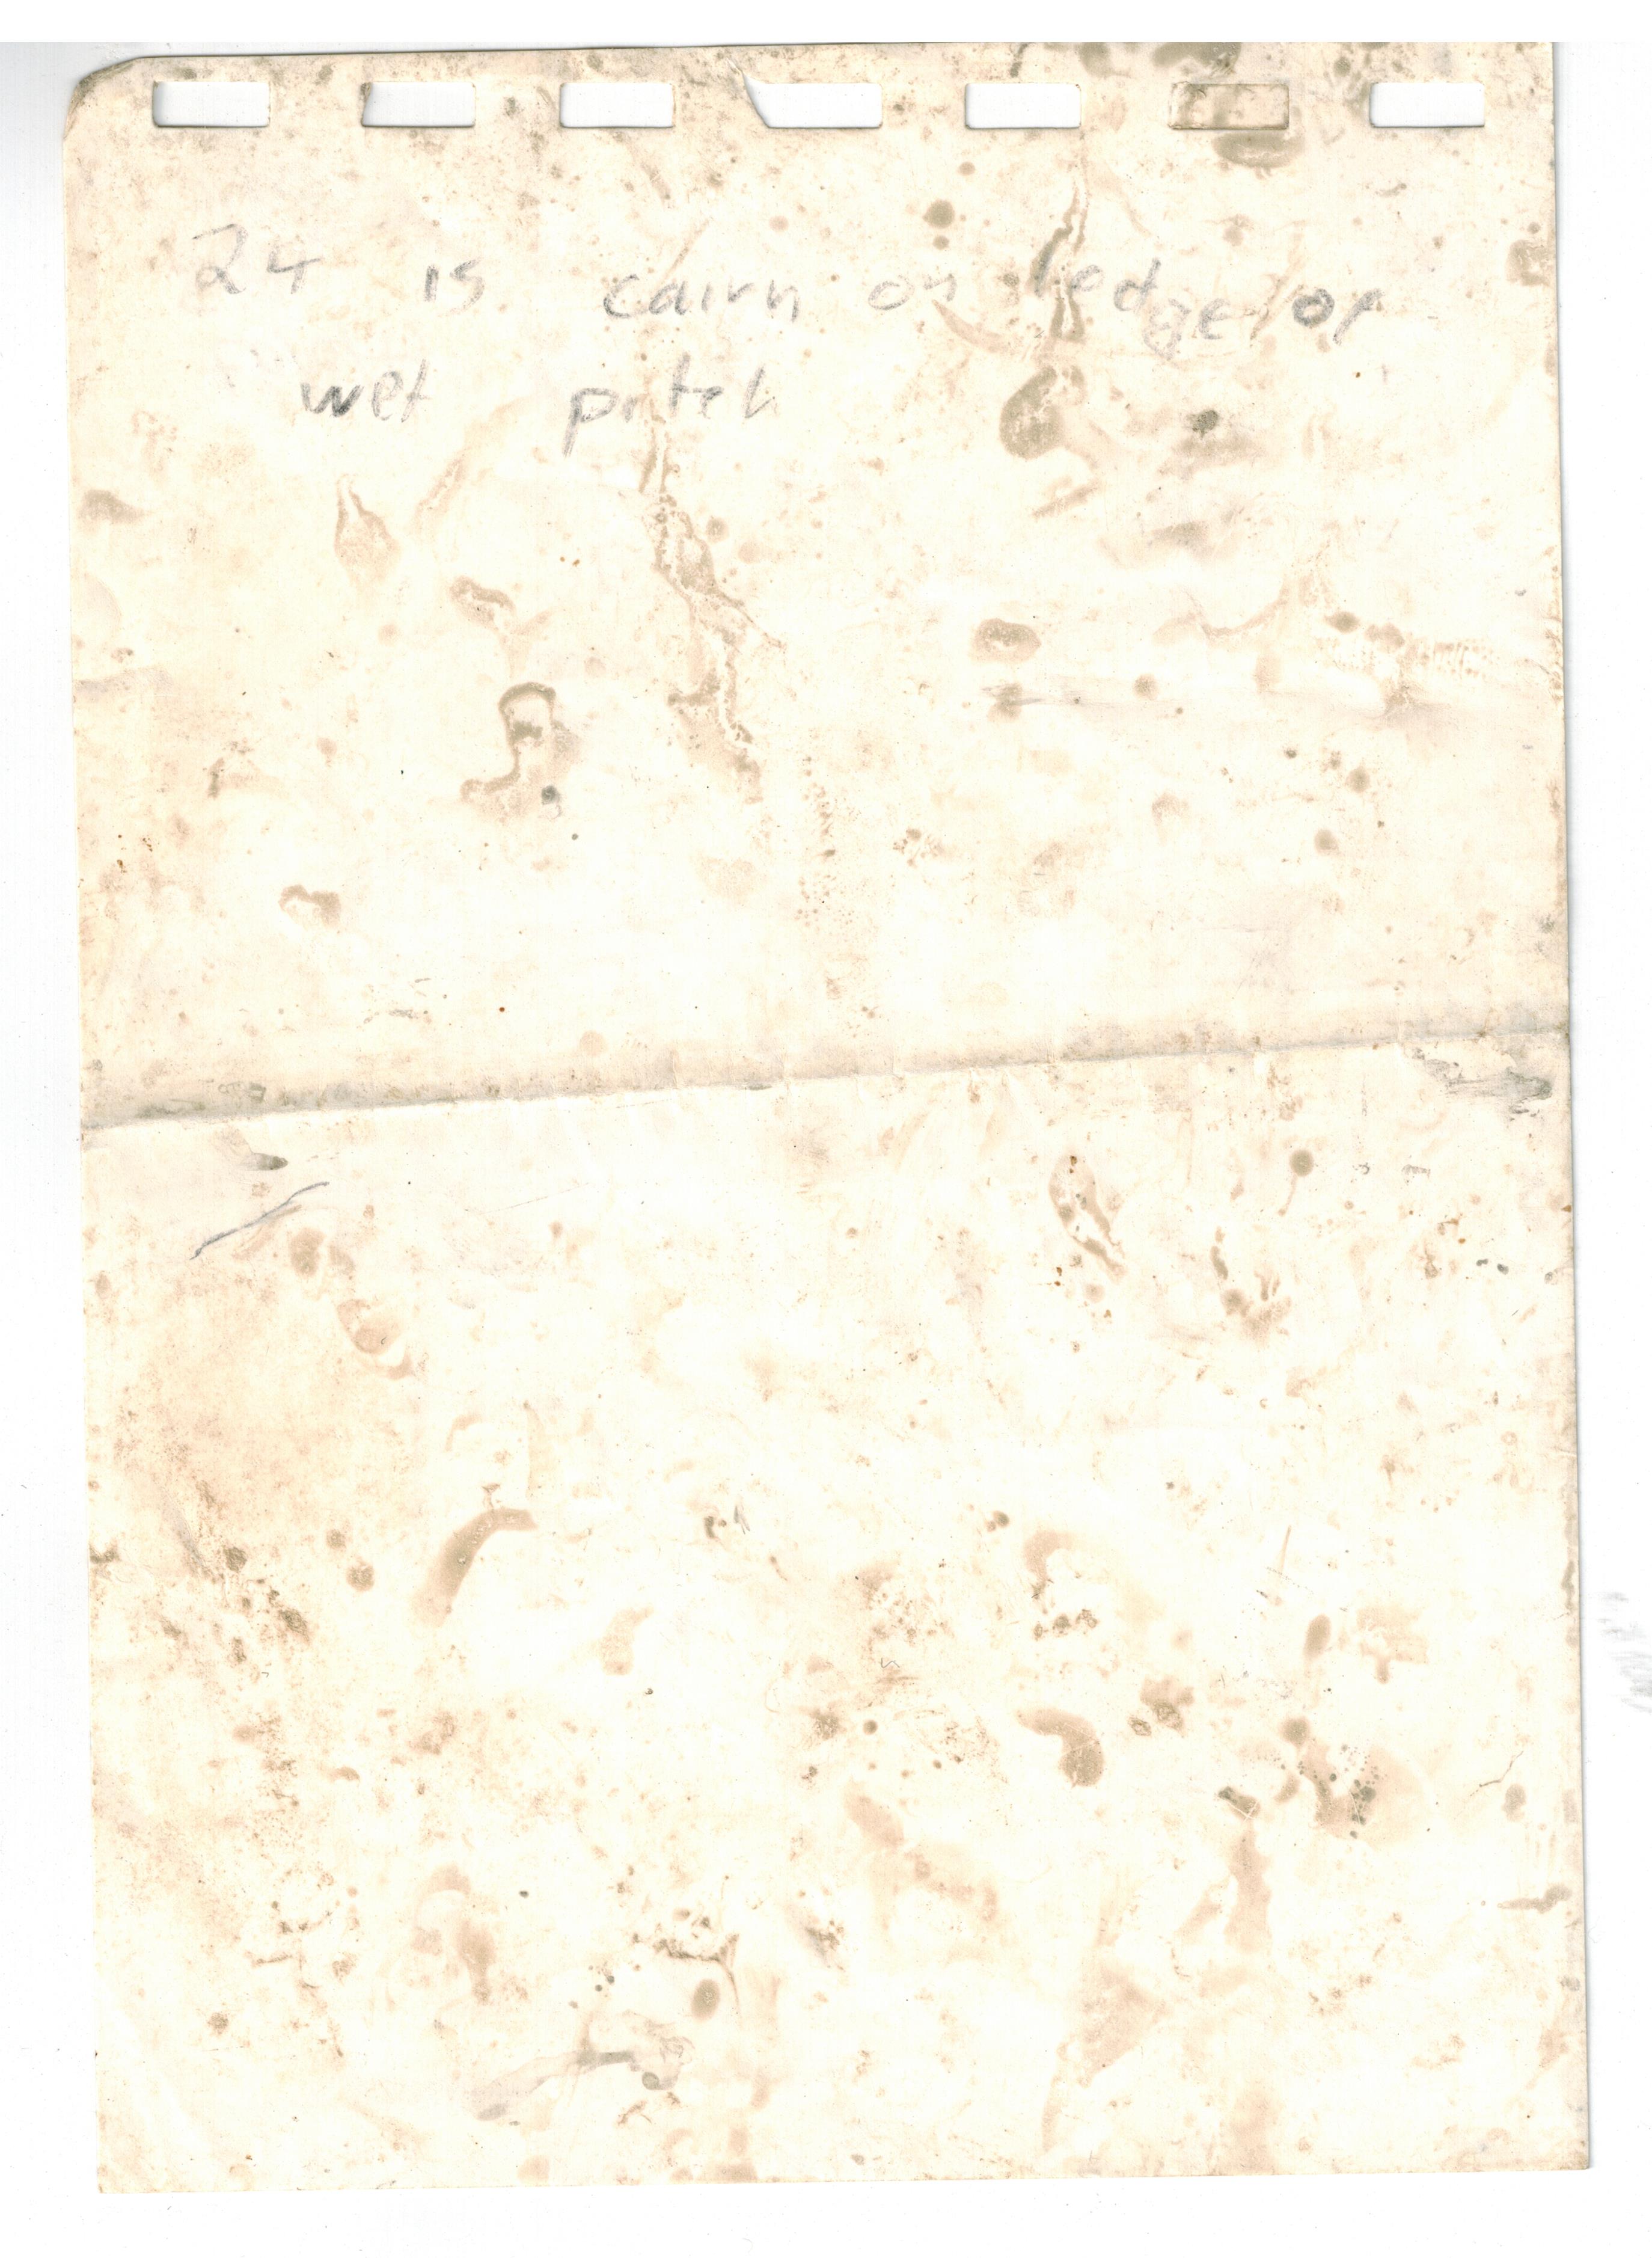 24 is cairn on ledge of
wet pitch